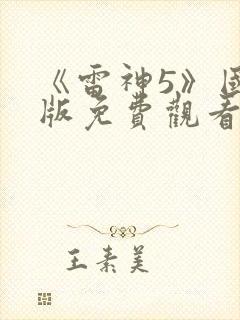 《雷神5》國
版免費觀看
王素美